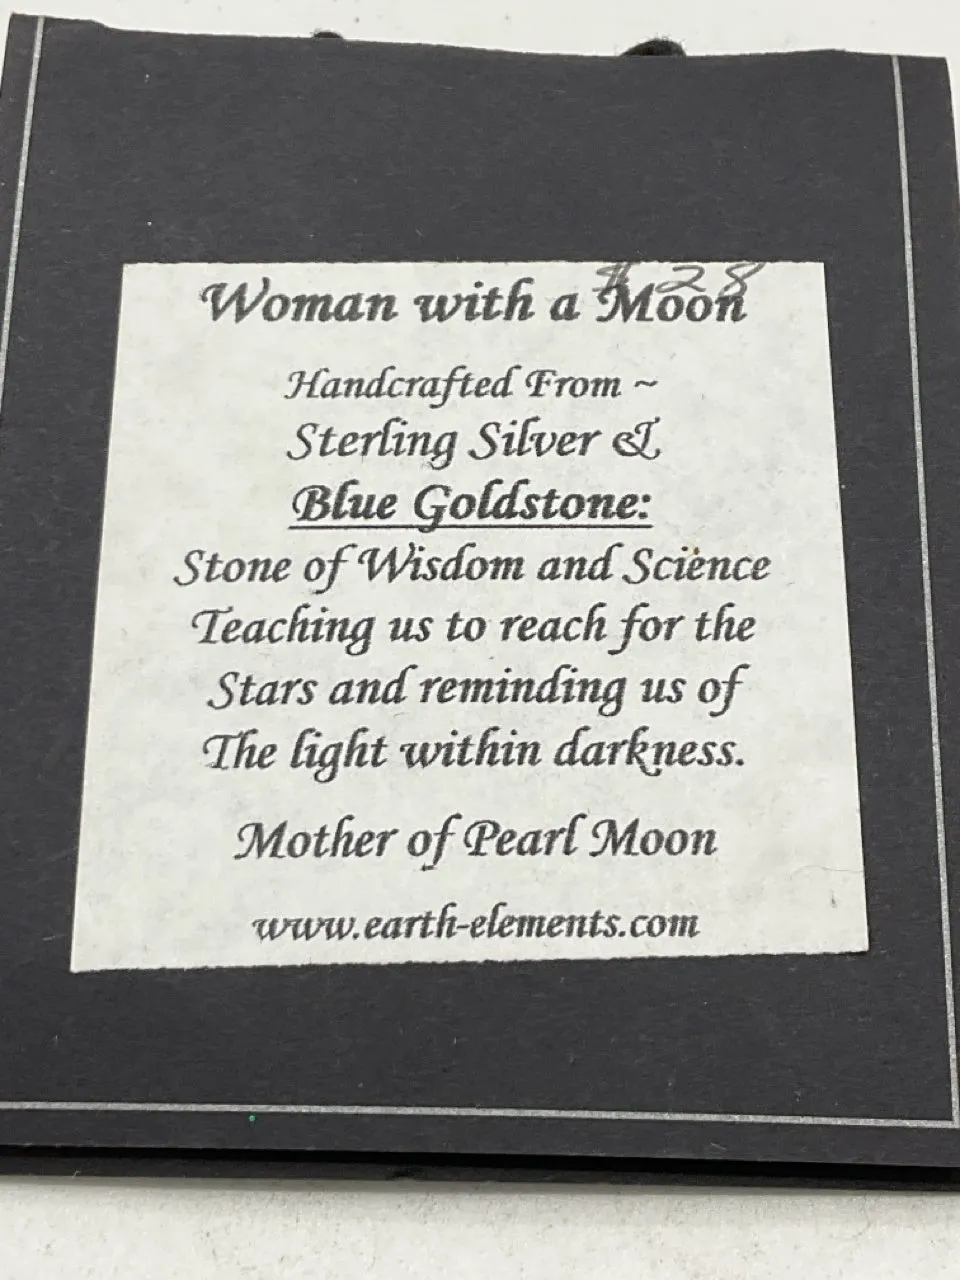 $28
Woman with a Moon
Handcrafted From ~
Sterling Silver &
Blue Goldstone:
Stone of Wisdom and Science
Teaching us to reach for the
Stars and reminding us of
The light within darkness.
Mother of Pearl Moon
www.earth-elements.com